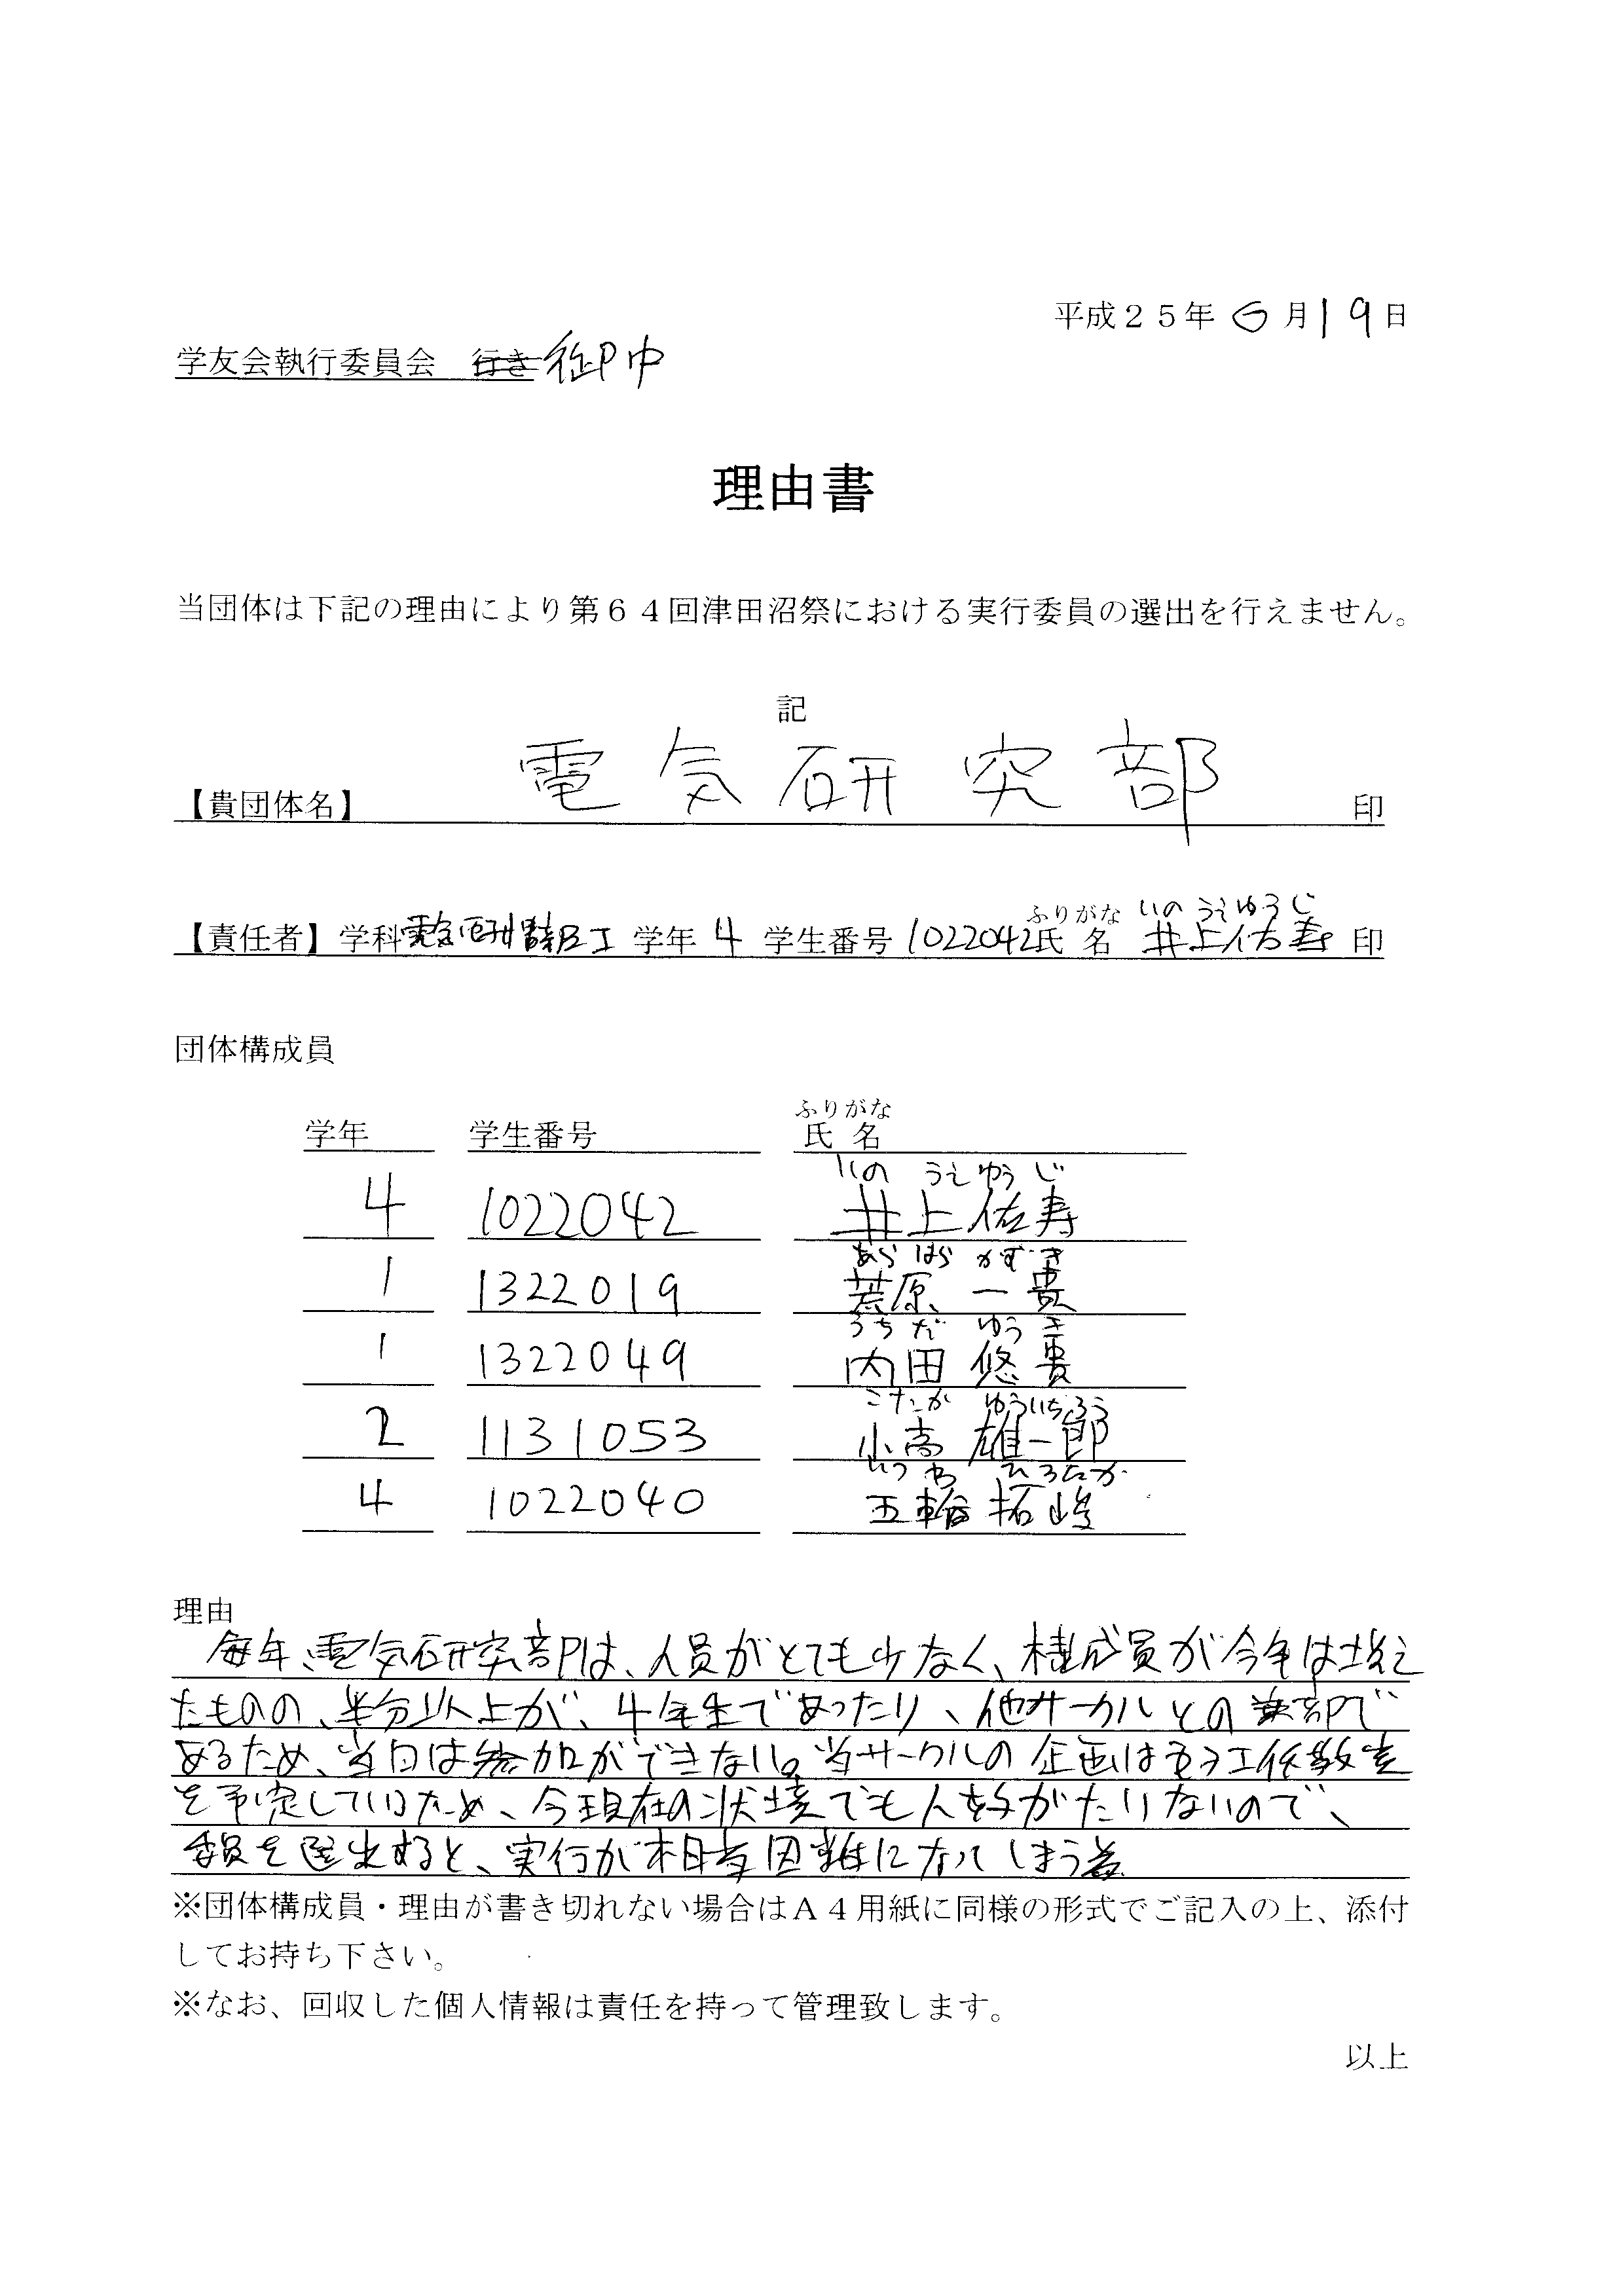 平成２５年 6 月 19 日
学友会執行委員会 行き 御中
理由書
当団体は下記の理由により第６４回津田沼祭における実行委員の選出を行えません。
記
【貴団体名】 電気研究部 印
ふりがな いのうえゆうじ
【責任者】 学科 学年 4 学生番号 1022042 氏 名 井上佑寿 印
団体構成員
ふりがな
学年 学生番号 氏 名
いのうえゆうじ
4 1022042 井上佑寿
あらはら かずき
1 1322019 荒原 一貴
うちだ ゆうき
1 1322049 内田 悠貴
こたか ゆういちろう
2 1131053 小高 雄一郎
いつわ ひろたか
4 1022040 五輪 拓
理由
毎年、電気研究部は、人員がとても少なく、構成員が今年は増え
たものの、半分以上が、4年生であったり、他サークルとの兼部で
あるため、当日は参加ができない。当サークルの企画は電子工作教室
を予定しているため、今現在の状境でも人数がたりないので、
委員を選出すると、実行が相当困難になってしまう為
※団体構成員・理由が書き切れない場合はＡ４用紙に同様の形式でご記入の上、添付
してお持ち下さい。
※なお、回収した個人情報は責任を持って管理致します。
以上